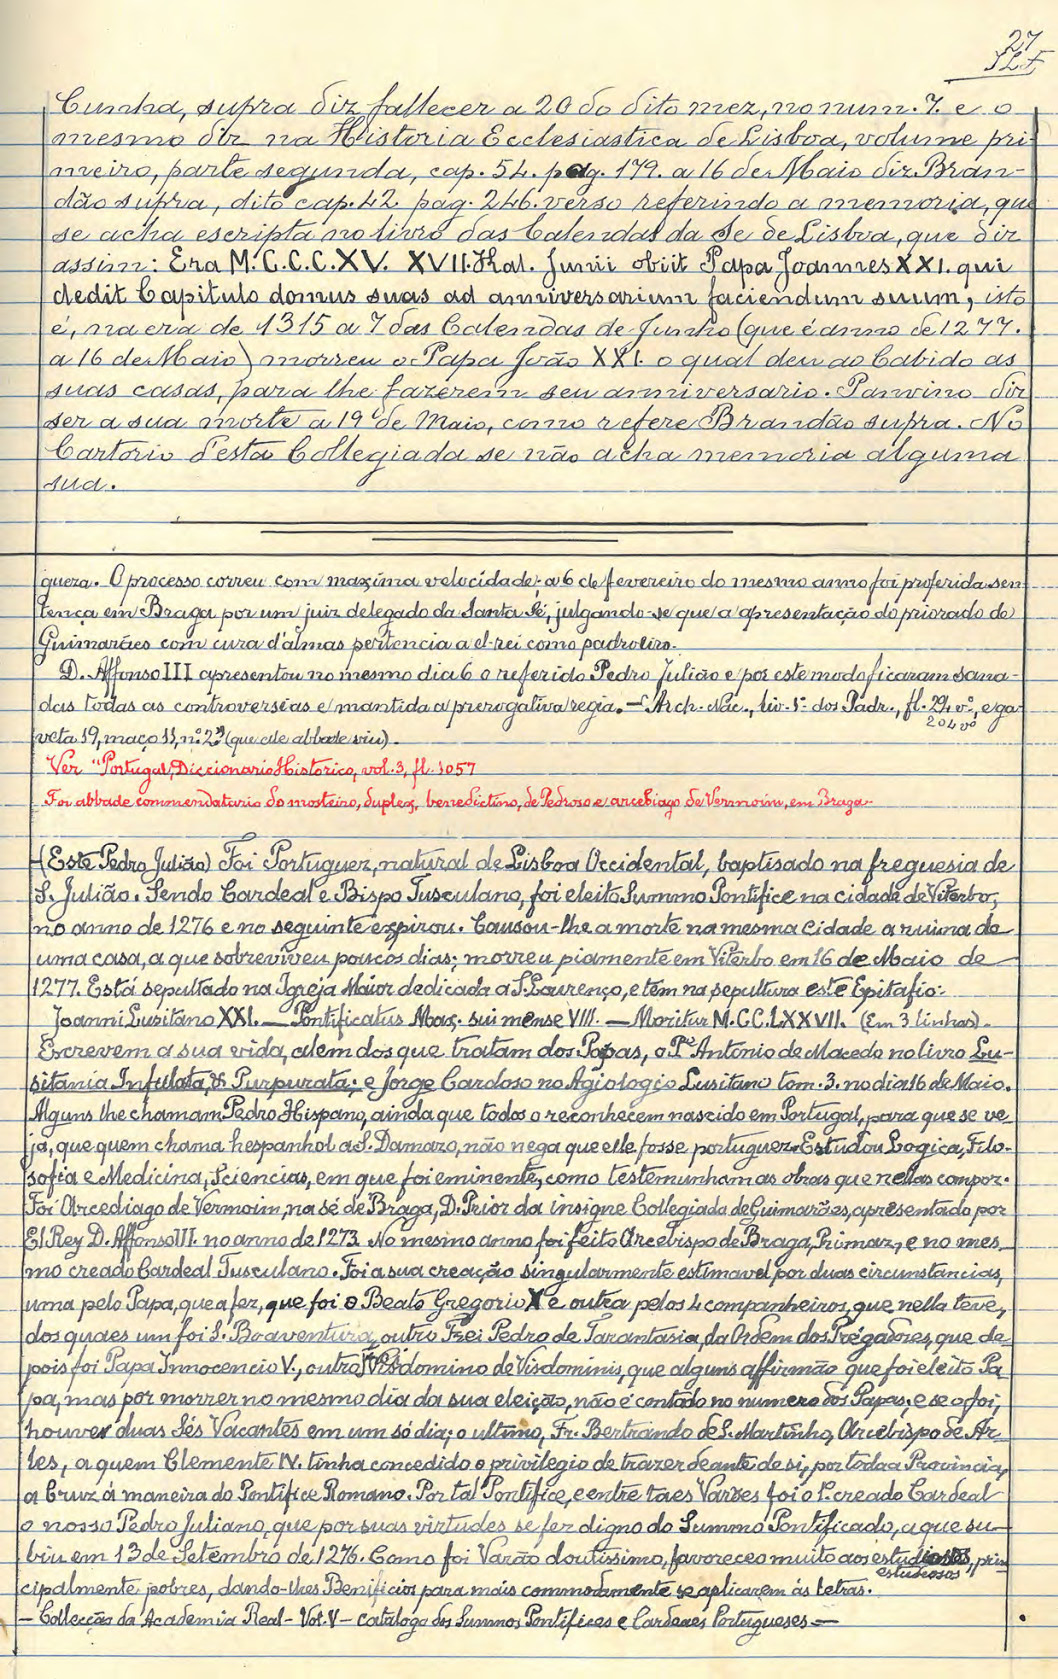 27
Cunha, supra diz fallecer a 20 do dito mez, no num. 7. e o
mesmo diz na Historia Ecclesiastica de Lisboa, volume pri-
meiro, parte segunda, cap. 54. pag. 179. a 16 de Maio diz Bran-
dão supra, dito cap. 42 pag. 246. verso referindo a memoria, que
se acha escripta no livro das Calendas da Se de Lisboa, que diz
assim: Era M.C.C.C.XV. XVII. Kal. Junii obiit Papa Joannes XXI. qui
dedit Capitulo domus suas ad anniversarium faciendum suum, isto
é, na era de 1315 a 7 das Calendas de Junho (que é anno de 1277.
a 16 de Maio) morreu o Papa João XXI. o qual deu ao Cabido as
suas casas, para lhe fazerem seu anniversario. Panvino diz
ser a sua morte a 19 de Maio, como refere Brandão supra. No
Cartorio d'esta Collegiada se não acha memoria alguma
sua.
gueza. O processo correu com maxima velocidade; a 6 de fevereiro do mesmo anno foi proferida sen-
tença em Braga por um juiz delegado da Santa Sé, julgando-se que a apresentação do priorado de
Guimarães com cura d'almas pertencia a el-rei como padroeiro.
D. Affonso III apresentou no mesmo dia 6 o referido Pedro Julião e por este modo ficaram sana-
das todas as controversias e mantida a prerogativa regia. - Arch. Nac., liv. 1º dos Padr., fl. 29 vº, e ga
204 vº
veta 19, maço 11, nº 2 (que elle abbade viu).
Ver "Portugal, Diccionario Historico, vol. 3, fl. 1057
Foi abbade commendatario do mosteiro, duplex, benedictino, de Pedroso e arcebiago de Vermoim, em Braga
(Este Pedro Julião) Foi Portuguez, natural de Lisboa Occidental, baptisado na freguesia de
S. Julião. Sendo Cardeal e Bispo Tusculano, foi eleito Summo Pontifice na cidade de Viterbo,
no anno de 1276 e no seguinte expirou. Causou-lhe a morte na mesma Cidade a ruina de
uma casa, a que sobreviveu poucos dias; morreu piamente em Viterbo em 16 de Maio de
1277. Está sepultado na Igreja Maior dedicada a S. Lourenço, e tem na sepultura este Epitafio:
Joanni Lusitano XXI. - Pontificatus Max. sui mense VIII. - Moritur M.C.C.LXXVII. (Em 3 linhas).
Escrevem a sua vida, alem dos que tratam dos Papas, o Pe Antonio de Macedo no livro Lu-
sitania Infulata, & Purpurata; e Jorge Cardoso no Agiologio Lusitano tom. 3. no dia 16 de Maio.
Alguns lhe chamam Pedro Hispano, ainda que todos o reconhecem nascido em Portugal, para que se ve-
ja, que quem chama hespanhol a S. Damazo, não nega que elle fosse portuguez. Estudou Logica, Filo-
sofia e Medicina, Sciencias, em que foi eminente, como testemunham as obras que nellas compoz.
Foi Arcediago de Vermoim, na sé de Braga, D. Prior da insigne Collegiada de Guimarães, apresentado por
El Rey D. Affonso III. no anno de 1273. No mesmo anno foi feito Arcebispo de Braga, Primaz, e no mes-
mo creado Cardeal Tusculano. Foi a sua creação singularmente estimavel, por duas circunstancias,
uma pelo Papa, que a fez, que foi o Beato Gregorio X e outra pelos 4 companheiros, que nella teve,
dos quaes um foi S. Boaventura, outro Frei Pedro de Tarantasia, da Ordem dos Prégadores, que de
pois foi Papa Innocencio V., outro, Visdomino de Visdominis, que alguns affirmão que foi eleito Pa
pa, mas por morrer no mesmo dia da sua eleição, não é contado no numero dos Papas; e se o foi,
houver duas Sés Vacantes em um só dia; o ultimo, Fr. Bertrando de S. Martinho, Arcebispo de Ar-
les, a quem Clemente IV. tinha concedido o privilegio de trazer deante de si, por toda a Provincia,
a Cruz á maneira do Pontifice Romano. Por tal Pontifice, e entre taes Varões foi o 1º creado Cardeal
o nosso Pedro Juliano, que por suas virtudes se fez digno do Summo Pontificado, a que su-
biu em 13 de Setembro de 1276. Como foi Varão doutissimo, favoreceo muito aos estudiosos, prin
estudiosos
cipalmente pobres, dando-lhes Beneficios para mais commodamente se aplicarem ás letras.
- Collecção da Academia Real - Vol. V - catalogo dos Summos Pontifices e Cardeaes Portugueses -